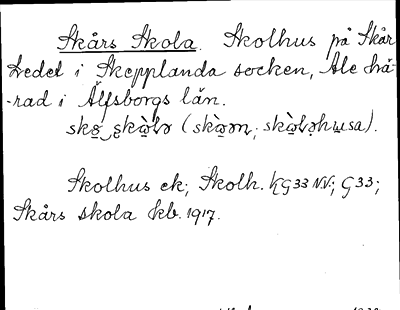 Skårs Skola. Skolhus på Skår
Ledet i Skepplanda socken, Ale hä-
-rad i Älfsborgs län.
Skolhus ek; Skolh. KG33 NV; G33;
Skårs skola kb. 1917.